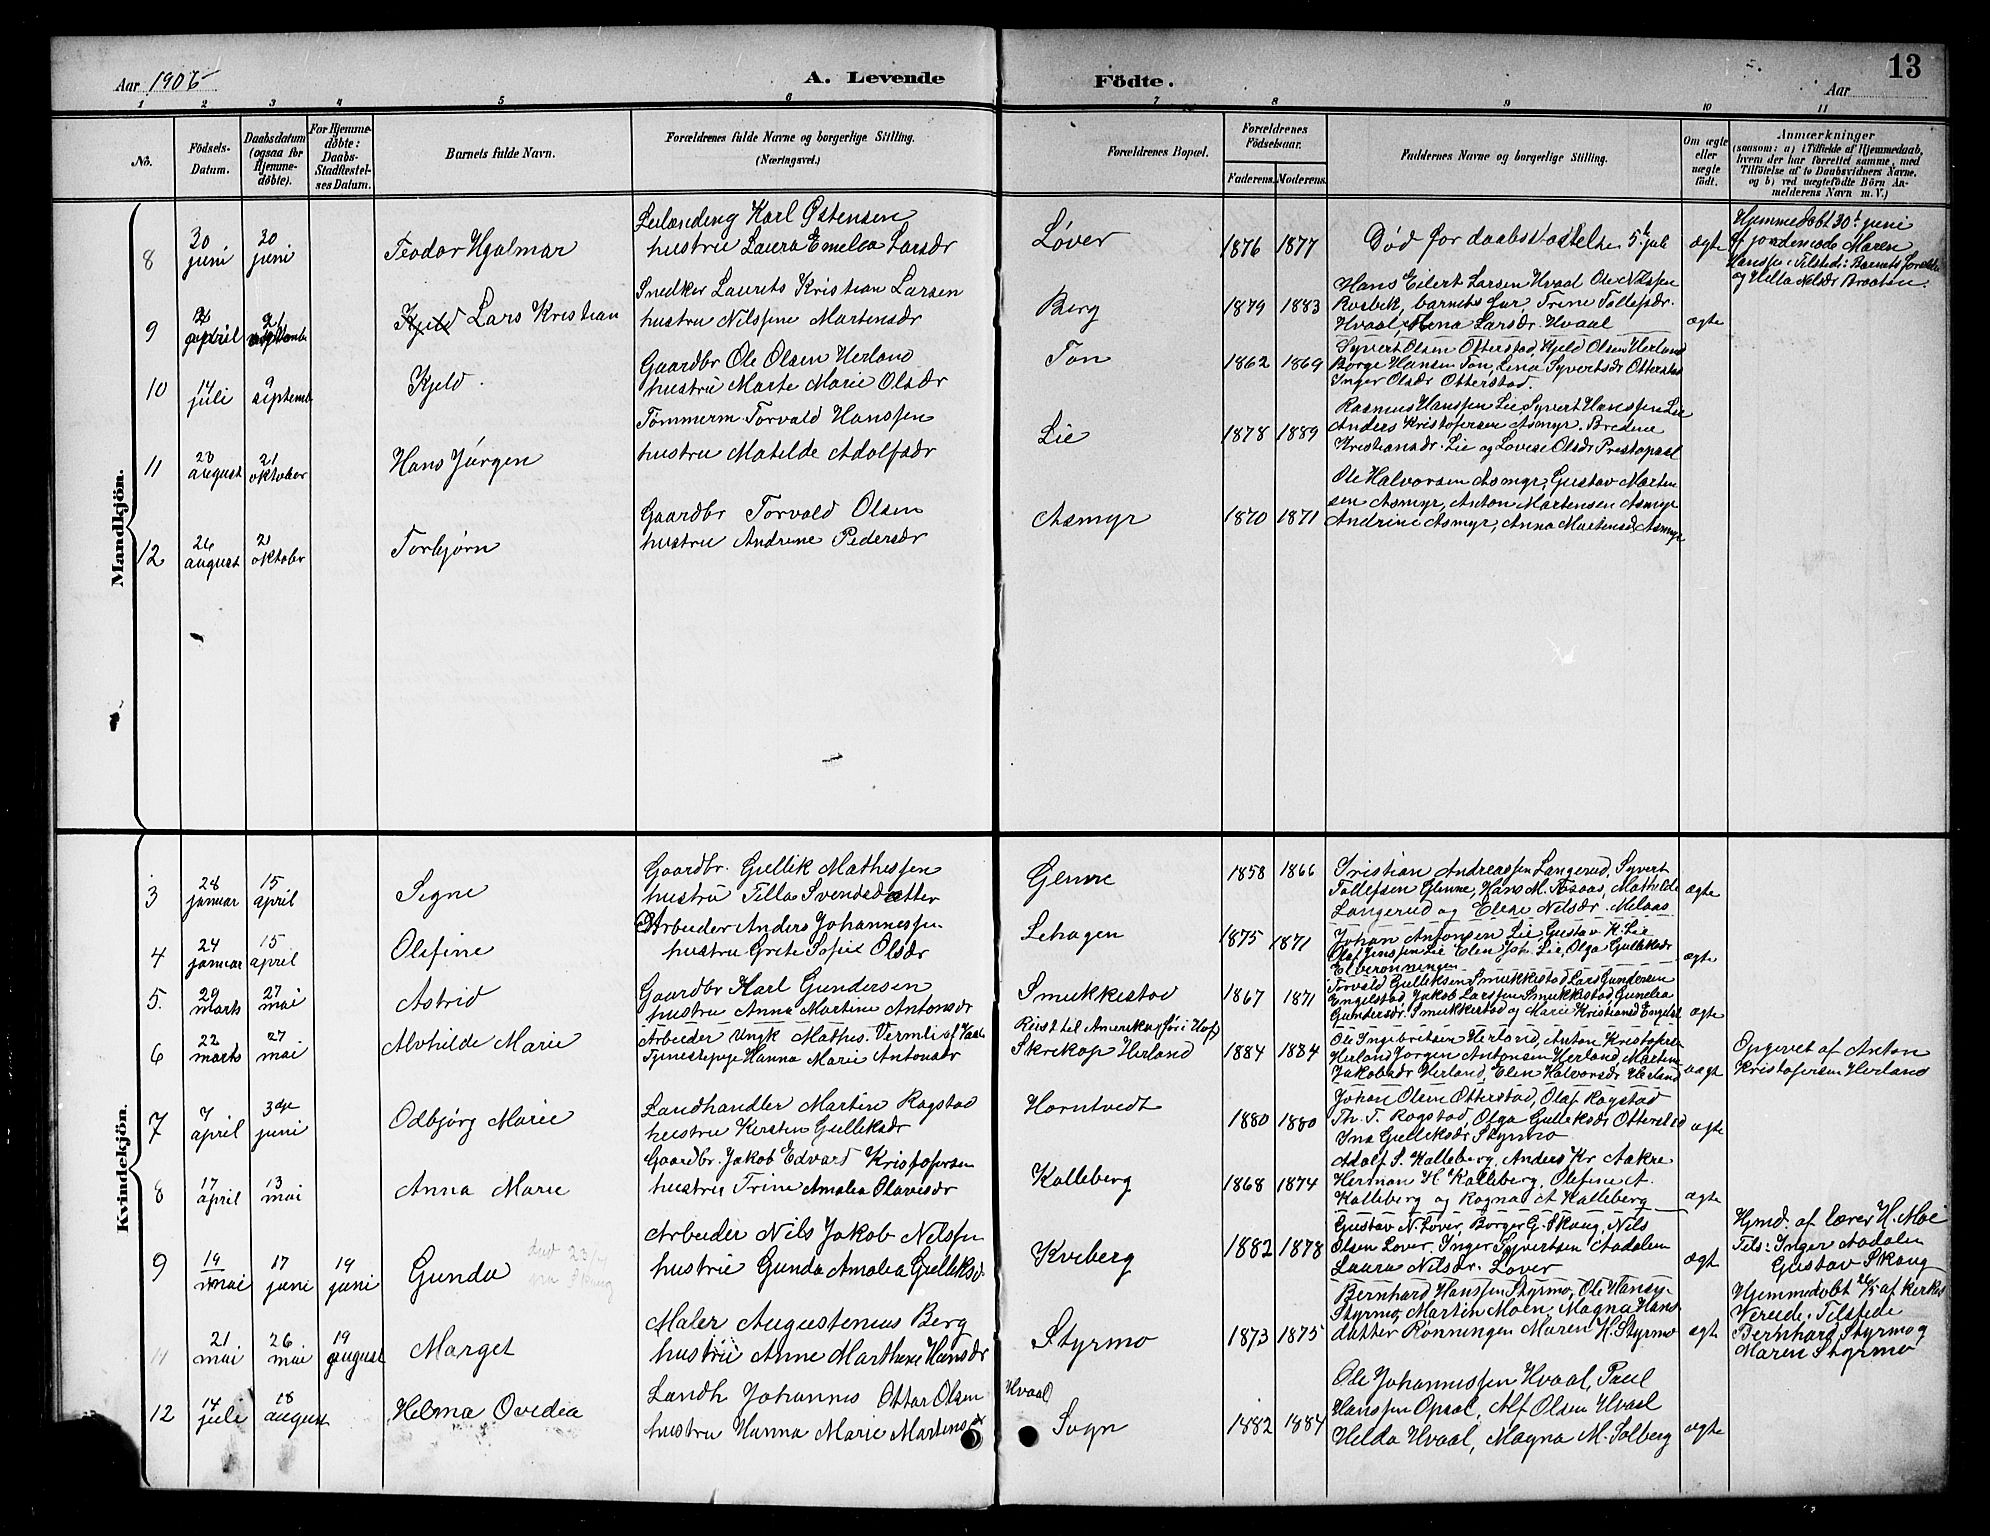 Aar 1906
A. Levende Födte.
Aar
13
1 2 3 4 5 6 7 8 9 10 11
No.
Födsels-Datum.
Daabsdatum (ogsaa for Hjemmedøbte).
For Hjemmedøbte: Daabs-Stadfæstelses Datum.
Barnets fulde Navn.
Forældrenes fulde Navne og borgerlige Stilling. (Næringsvei.)
Forældrenes Bopæl.
Forældrenes Födselsaar.
Faderens. Moderens.
Faddernes Navne og borgerlige Stilling.
Om ægte eller uægte født.
Anmærkninger
(saasom: a) i Tilfælde af Hjemmedaab, hvem der har forrettet samme, med Tilføielse af to Daabsvidners Navne. og b) ved uægtefødte Börn Anmelderens Navn m. V.)
Mandkjön.
8 20 juni 30 juni Teodor Hjalmar
Leilænding Karl Østensen
hustru Laura Emelea Larsdr
Løver 1876 1877
Død for daabsstadfæstelse 5te juli
ægte
Hjemmedøbt 30te juni
af jordemode Maren
Hanssen. Tilstede: Barnets foreldre
og Hilla Nilsdr Braaten
9 april Kjeld Lars Kristian
Snedker Laurits Kristian Larsen
hustru Nilssine Martensdr
Berg 1879 1883
Hans Eilert Larsen Hvaal
Rosbik, barnets far, Trine Tollefsdr.
Hvaal, Lena Larsdr. Hvaal
ægte
10 14 juli 9 septemb Kjeld.
Gaardbr Ole Olsen Herland
hustru Marte Marie Olsdr
Ton 1862 1869
Syvert Olsen Otterstad, Kjeld Olsen Herland
Borge Hansen Ton, Lena Syvertsdr Otterstad
Inger Olsdr Otterstad.
11 23 august 21 oktober Hans Jørgen
Tømmerm Torvald Hanssen
hustru Matilde Adolfsdr
Lie 1878 1889
Rasmus Hanssen Lie, Syvert Hanssen Lie
Anders Kristofersen Asmyr. Bredine
Kristiansdr. Lie og Lovise Olsdr
12 26 august 21 oktober Torbjørn
Gaardbr Torvald Olsen
hustru Andrine Pedersdr
Asmyr 1870 1871
Ole Halvorsen Asmyr, Gustav Marten
sen Asmyr, Anton Martensen Asmyr
Andrine Asmyr, Anna Martensd. Asmyr
Kvindekjön.
3 28 januar 15 april Signe
Gaardbr. Gullik Mathessen
hustru Tilla Svendsdatter
Glenne 1858 1866
Kristian Andreassen Langerud, Syvert
Tollefsen Glenne, Hans M. Aasaas, Mathilde
Langerud og Elese Nilsdr. Melaas
ægte
4 24 januar 15 april Olefine
Arbeider Anders Johannessen
hustru Grete Sofie Olsdr
Lehagen 1875 1871
Johan Antonsen Lie, Gustav K. Lie
Olaf Jenssen Lie Elen Joh. Lie, Olga Gulliksdr
Elverønningen
ægte
5. 29 marts 27 mai Astrid
Gaardbr Karl Gundersen
hustru Anna Martine Antonsdr
Smukkestad 1867 1871
Torvald Gulliksen Smukkestad Lars Gundersen
Engelstad, Jakob Larssen Smukkestad, Gunelia
Gundersdr. Smukkestad og Marie Kristiansd Engelst
ægte
6 22 marts 27 mai Alvhilde Marie
Arbeider Ungk Mathes. Vermli af Vaale
Tjenestepige Hanna Marie Antonsdr
Reist til Amerika, før i Hof
Skrekop Herland 1884 1884
Ole Ingebretsen Herland, Anton Kristofersen
Herland, Jørgen Antonsen Herland, Martine
Jakobsdr Herland, Elen Halvorsdr Herland
uægt
Opgivet af Anton
Kristofersen Herland
7 7 april 3die juni Odbjørg Marie
Landhandler Martin Rogstad
hustru Kersten Gulliksdr
Horntvedt 1880 1880
Johan Olsen Otterstad, Olaf Rogstad
Th. T. Rogstad, Olga Gulliksdr Otterstad
Ina Gulliksdr Styrmo
ægte
8 17 april 13 mai Anna Marie
Gaardbr. Jakob Edvard Kristofersen
hustru Trine Amalia Olavesdr
Kalleberg 1868 1874
Adolf S. Kalleberg, Anders Kr. Aakre
Herman H. Kalleberg, Olefine A.
Kalleberg og Ragna A Kalleberg
ægte
9 19 mai 17 juni 19 juni Gunda
død 23/4
Arbeider Nils Jakob Nilssen
hustru Gunda Amalia Gulliksd.
Kveberg 1882 1878
Gustav N. Løver, Borger G. Skoug, Nils
Olsen Løver, Inger Syvertsen Aadalen
Laura Nilsdr. Løver
ægt
Hjmd. af lærer H. Moe
Tils: Inger Aadalen
Gustav Skoug
11 21 mai 26 mai 19 august Marget
Maler Augustenius Berg
hustru Anne Marthene Hansdr
Styrmo 1873 1875
Bernhard Hanssen Styrmo, Ole Hansen
Styrmo, Martin Moen, Magna Hans
datter Rønningen Maren H. Styrmo
ægt
Hjemmedøbt 26/5 af kirkes
Tilstede
Bernhard Styrmo og
Maren Styrmo
12 14 juli 18 august Helma Ovedia
Landh Johannes Ottar Olsen
hustru Hanna Marie Martensdr
Hvaal
Sogn 1882 1884
Ole Johannessen Hvaal, Paul
Hanssen Opsal, Alf Olsen Hvaal
Helda Hvaal, Magna M. Solberg
ægte